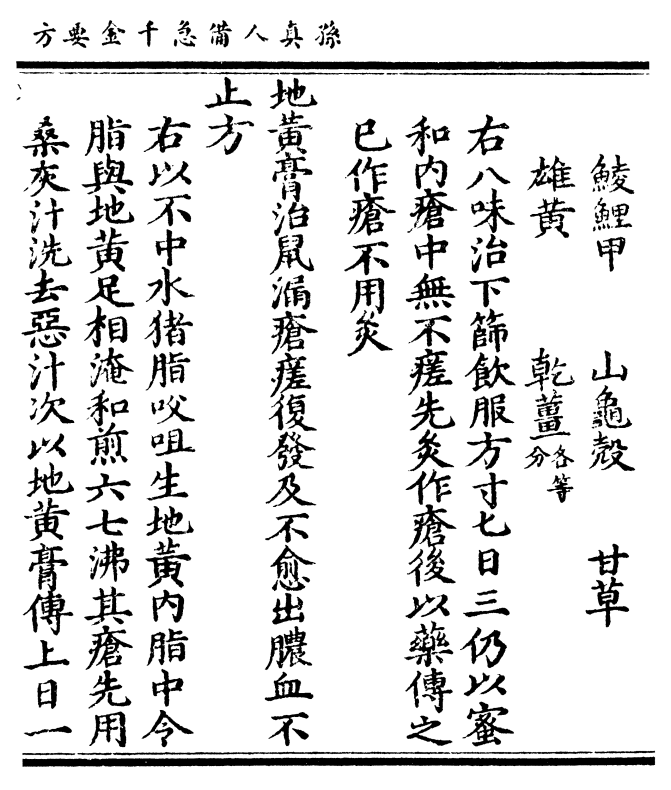 孫真人備急千金要方
鯪鯉甲 山龜殼 甘草
雄黃 乾薑各等分
右八味治下篩飲服方寸匕日三仍以蜜
和内瘡中無不瘥先灸作瘡後以藥傅之
已作瘡不用灸
地黃膏治鼠漏瘡瘥復發及不愈出膿血不
止方
右以不中水猪脂㕮咀生地黃内脂中令
脂與地黃足相淹和煎六七沸其瘡先用
桑灰汁洗去惡汁次以地黃膏傅上日一